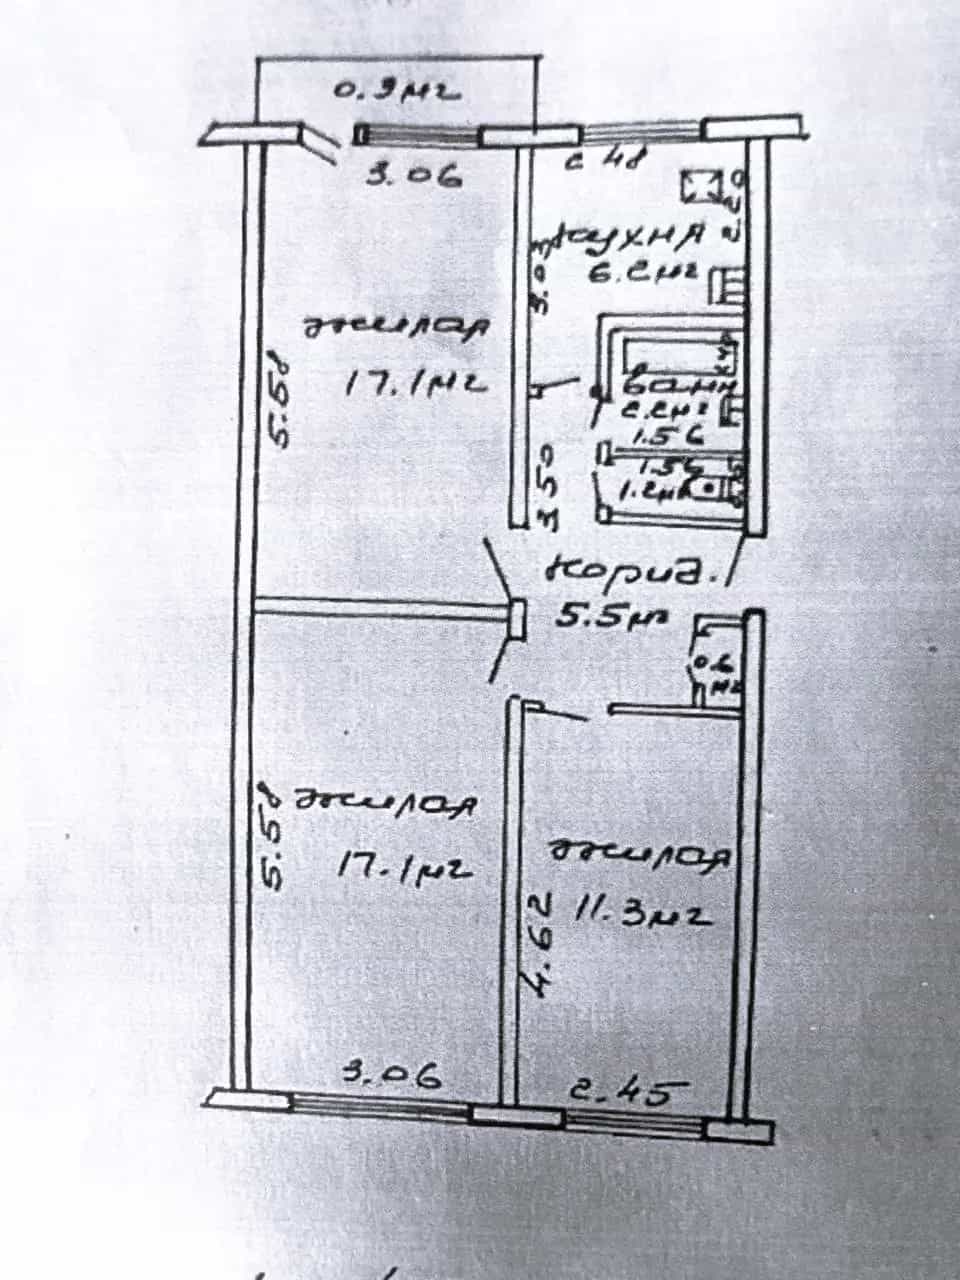 0.9м2
3.06
2.48
2.20
кухня
6.2м2
3.03
жилая
17.1м2
5.58
ванн
2.2м2
1.56
1.56
1.2м2
3.50
корид.
5.5м2
0.6
м2
жилая
17.1м2
5.58
жилая
11.3м2
4.62
3.06
2.45